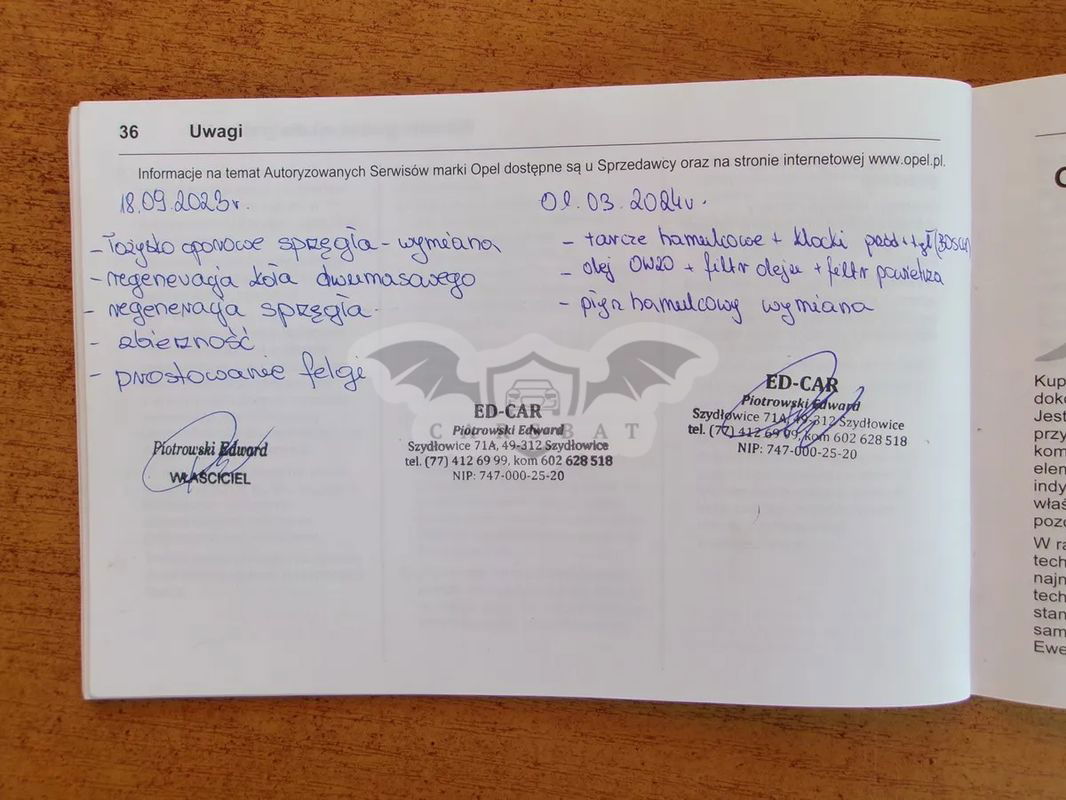 36 Uwagi
Informacje na temat Autoryzowanych Serwisów marki Opel dostępne są u Sprzedawcy oraz na stronie internetowej www.opel.pl.
18.09.2023r.
- łożysko oporowe sprzęgła - wymiana
- regeneracja koła dwumasowego
- regeneracja sprzęgła
- zbieżność
- prostowanie felgi
Piotrowski Edward
WŁAŚCICIEL
ED-CAR
Piotrowski Edward
Szydłowice 71A, 49-312 Szydłowice
tel. (77) 412 69 99, kom 602 628 518
NIP: 747-000-25-20
01.03.2024r.
- tarcze hamulcowe + klocki przód + tył (BOSCH)
- olej 0W20 + filtr oleju + filtr powietrza
- płyn hamulcowy wymiana
ED-CAR
Piotrowski Edward
Szydłowice 71A, 49-312 Szydłowice
tel. (77) 412 69 99, kom 602 628 518
NIP: 747-000-25-20
CAR BAT
Kup
doko
Jest
przy
kom
elem
indy
właś
pozo
W ra
tech
najn
tech
stan
sam
Ewe